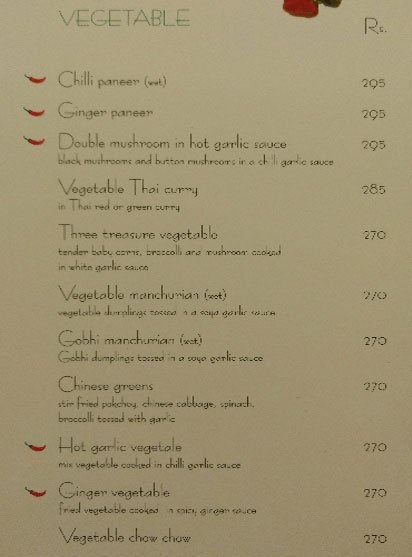 VEGETABLE
Rs.
Chilli paneer (wet) 295
Ginger paneer 295
Double mushroom in hot garlic sauce 295
black mushrooms and button mushrooms in a chilli garlic sauce
Vegetable Thai curry 285
in Thai red or green curry
Three treasure vegetable 270
tender baby corns, broccolli and mushroom cooked
in white garlic sauce
Vegetable manchurian (wet) 270
vegetable dumplings tossed in a soya garlic sauce
Gobhi manchurian (wet) 270
Gobhi dumplings tossed in a soya garlic sauce
Chinese greens 270
stir fried pokchoy, chinese cabbage, spinach,
broccolli tossed with garlic
Hot garlic vegetale 270
mix vegetable cooked in chilli garlic sauce
Ginger vegetable 270
fried vegetable cooked in spicy ginger sauce
Vegetable chow chow 270